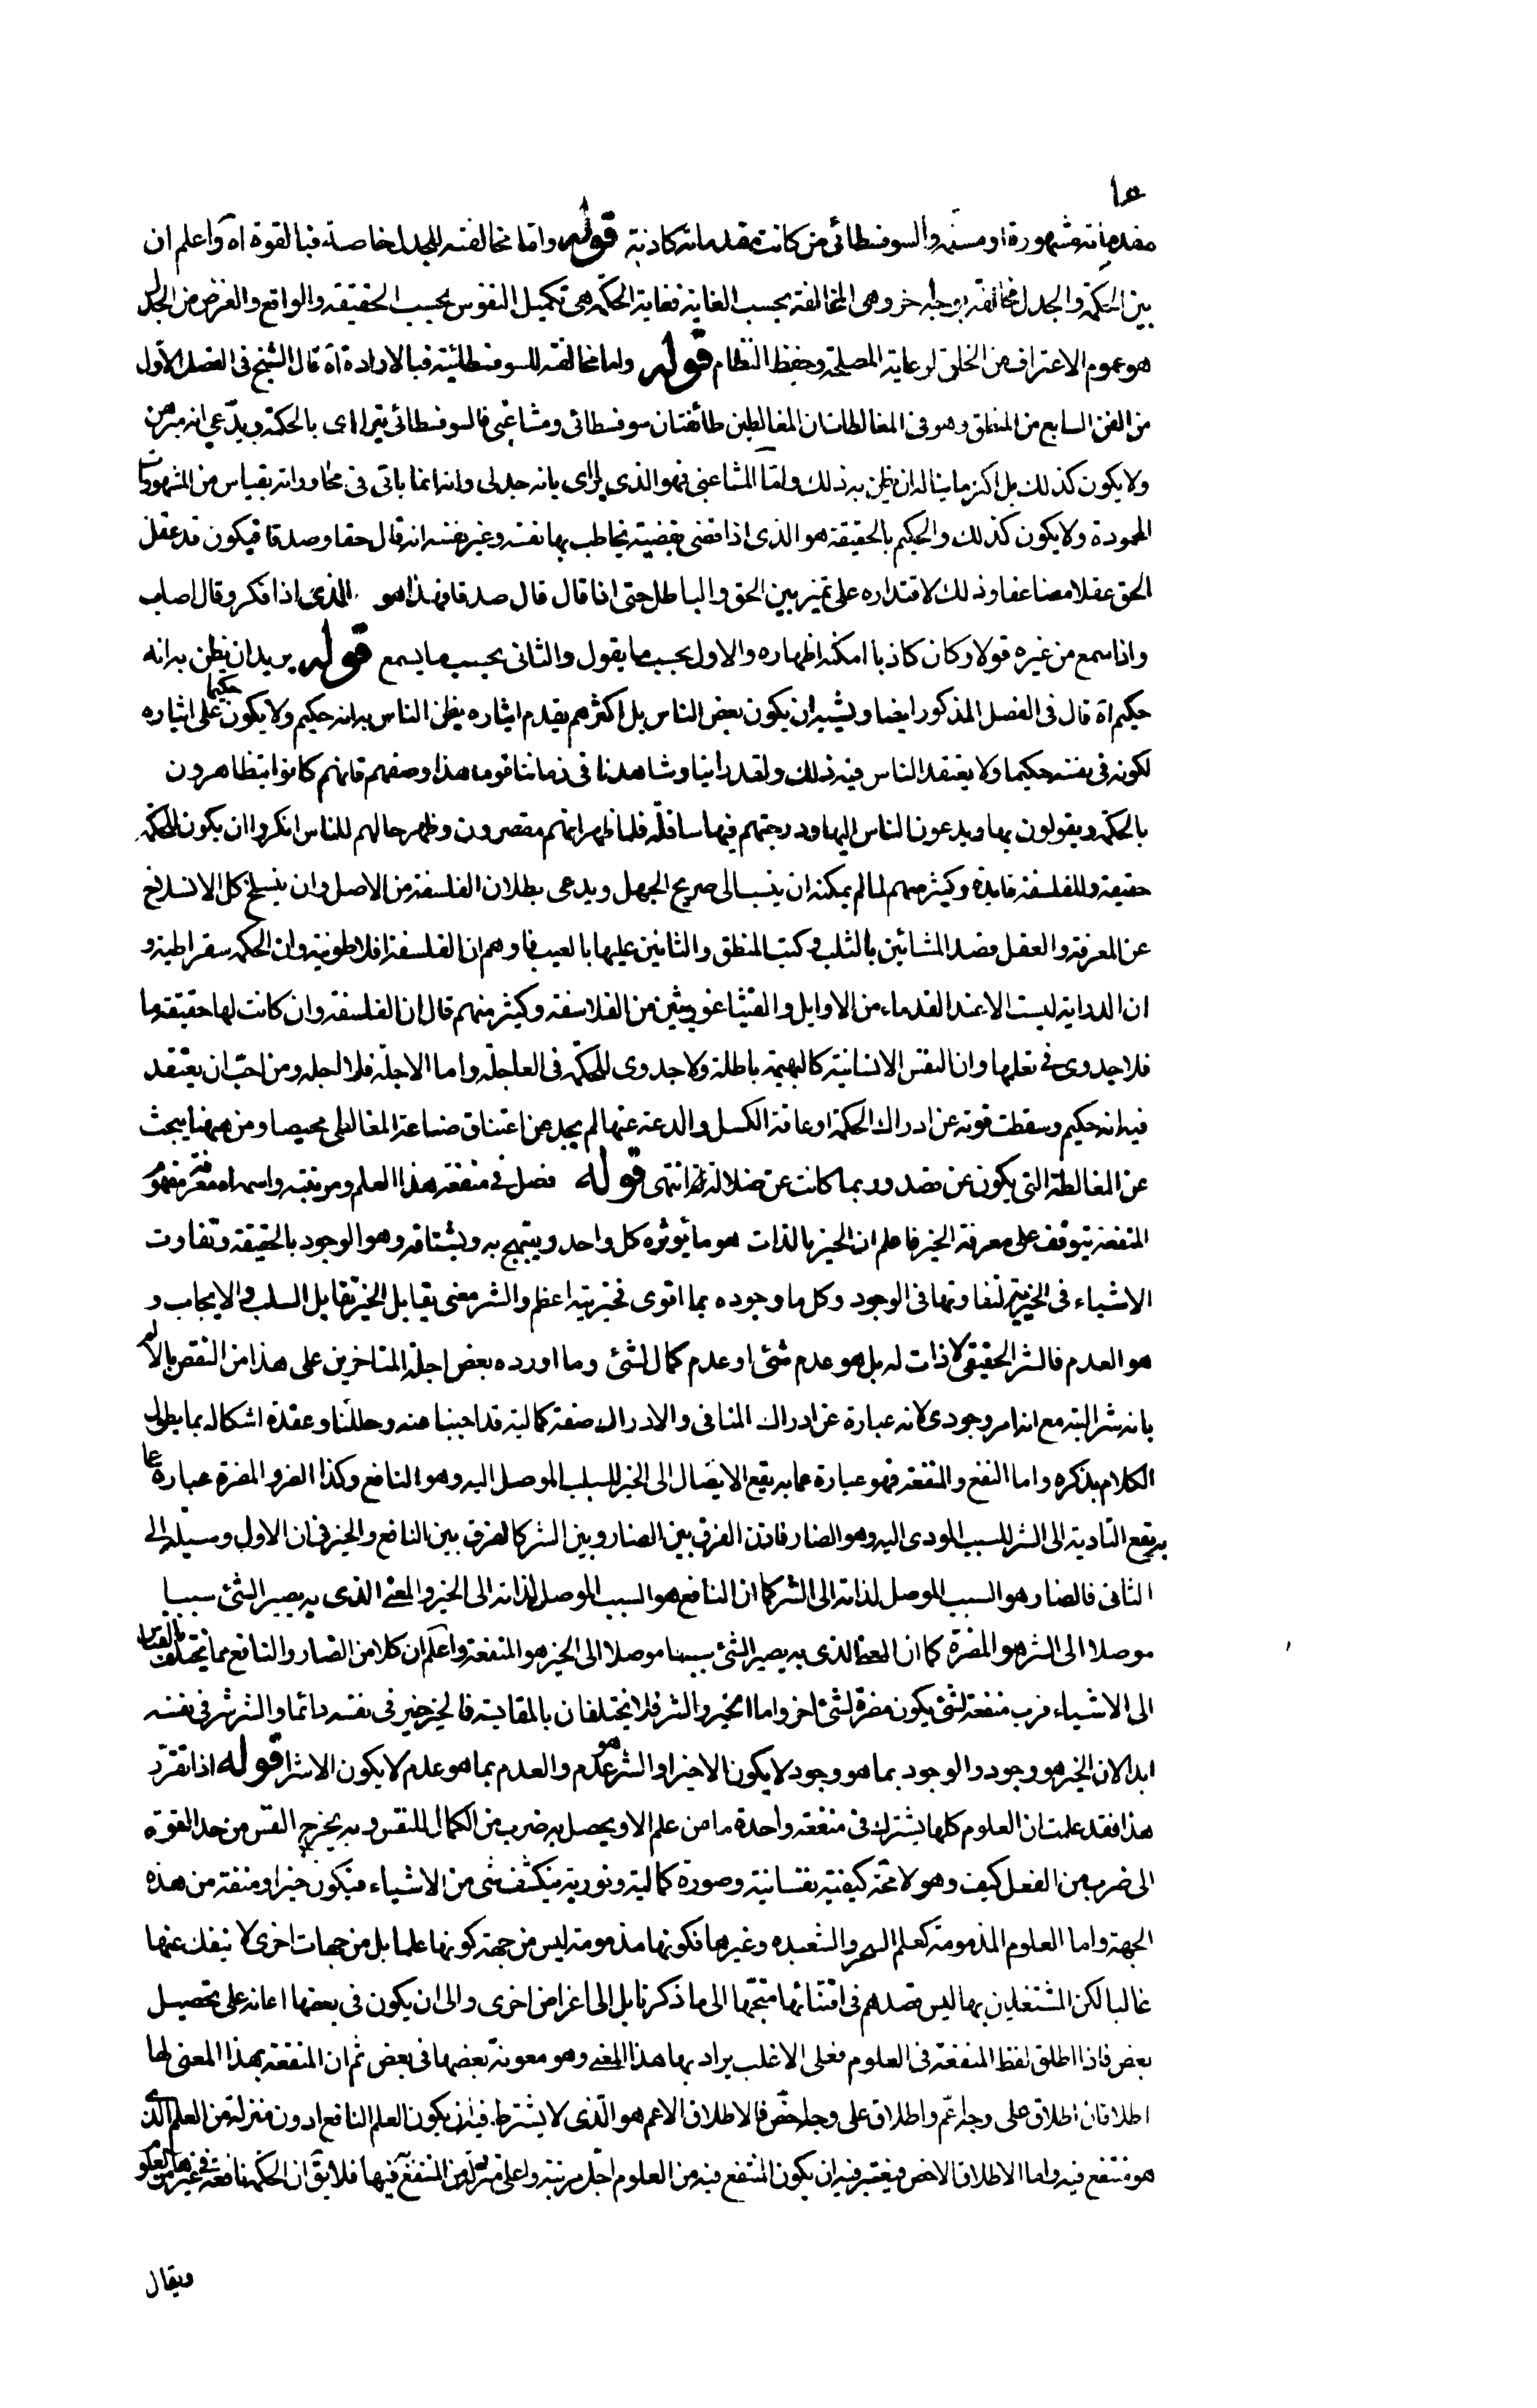 ١٥
مقدماته مشهورة او مسلمة والسوفسطائى من كانت مقدماته كاذبة قوله واما مخالفته للجدل خاصة فبالقوة اه واعلم ان
بين الحكمة والجدل مخالفة بوجه اخر وهى المخالفة بحسب الغاية فغاية الحكمة هى تكميل النفوس بحسب الحقيقة والواقع والغرض من الجدل
هو عموم الاعتراف من الخلق لرعاية المصلحة وحفظ النظام قوله واما مخالفته للسوفسطائية فبالارادة اه قال الشيخ فى الفصل الاول
من الفن السابع من المنطق وهو فى المغالطات ان المغالطين طائفتان سوفسطائى ومشاغبى فالسوفسطائى يترااى بالحكمة ويدعى انه مبرهن
ولا يكون كذلك بل اكثر ما يناله ان يظن به ذلك واما المشاغبى فهو الذى يتراى بانه جدلى وانه انما ياتى فى محاوراته بقياس من المشهورات
المحمودة ولا يكون كذلك والحكيم بالحقيقة هو الذى اذا قضى بقضية يخاطب بها نفسه وغير نفسه انه قال حقا وصدقا فيكون قد عقل
الحق عقلا مضاعفا وذلك لاقتداره على تميز بين الحق والباطل حتى اذا قال قال صدقا فهذا هو الذى اذا فكر وقال اصاب
واذا سمع من غيره قولا وكان كاذبا امكنه اظهاره والاول بحسب ما يقول والثانى بحسب ما يسمع قوله يريد ان يظن به انه
حكيم اه قال فى الفصل المذكور ايضا ويشبه ان يكون بعض الناس بل اكثرهم يقدم ايثاره يظن الناس به انه حكيم ولا يكون حكيما على ايثاره
لكونه فى نفسه حكيما ولا يعتقد الناس فيه ذلك ولقد راينا وشاهدنا فى زماننا قوما هذا وصفهم فانهم كانوا يتظاهرون
بالحكمة ويقولون بها ويدعون الناس اليها ودرجتهم فيها سافلة فلما ظهر انهم مقصرون وظهر حالهم للناس انكروا ان يكون للحكمة
حقيقة وللفلسفة فايدة وكثير منهم لما لم يمكنه ان ينسب الى صريح الجهل ويدعى بطلان الفلسفة من الاصل وان ينسلخ كل الانسلاخ
عن المعرفة والعقل قصد المشائين بالثلب وكتب المنطق والثانين عليها بالعيب فاوهم ان الفلسفة افلاطونية وان الحكمة سقراطية و
ان الدراية ليست الا عند القدماء من الاوايل والفيثاغوريين من الفلاسفة وكثير منهم قال ان الفلسفة وان كانت لها حقيقة ما
فلا جدوى فى تعلمها وان النفس الانسانية كالبهيمة باطلة ولا جدوى للحكمة فى العاجلة واما الاجلة فلا اجلة ومن احب ان يعتقد
فيه انه حكيم وسقطت قوته عن ادراك الحكمة او عاقه الكسل والدعة عنها لم يجد عن اعتناق صناعة المغالطين محيصا ومن ههنا يبحث
عن المغالطة التى يكون عن قصد وربما كانت عن ضلالة انتهى قوله فصل فى منفعة هذا العلم ومرتبته واسمه اه معرفة مفهوم
المنفعة يتوقف على معرفة الخير فاعلم ان الخير بالذات هو ما يؤثره كل واحد ويبتهج به ويشتاقه وهو الوجود بالحقيقة وتفاوت
الاشياء فى الخيرية لتفاوتها فى الوجود وكل ما وجوده بما اقوى فخيريته اعظم والشر معنى يقابل الخير تقابل السلب والايجاب و
هو العدم فالشر الحقيقى لا ذات له بل هو عدم شئ او عدم كمال لشئ وما اورده بعض اجلة المتاخرين على هذا من النقض بالالم
بانه شر البتة مع انه امر وجودى لانه عبارة عن ادراك المنافى والادراك صفة كمالية قد اجبنا عنه وحللنا وعقدة اشكاله بما يطول
الكلام بذكره واما النفع والمنفعة فهو عبارة عما به يقع الايصال الى الخير للسبب الموصل اليه وهو النافع وكذا الضر والمضرة عبارة عما
به يقع التادية الى الشر للسبب المودى اليه وهو الضار فاذن الفرق بين الضار وبين الشر كالفرق بين النافع والخير فى ان الاول وسيلة الى
الثانى فالضار هو السبب الموصل لذاته الى الشر كما ان النافع هو السبب الموصل لذاته الى الخير والمعنى الذى به يصير الشئ سببا
موصلا الى الشر هو المضرة كما ان المعنى الذى به يصير الشئ سببا موصلا الى الخير هو المنفعة واعلم ان كلا من الضار والنافع مما يختلف بالقياس
الى الاشياء فرب منفعة لشئ يكون مضرة لشئ اخر واما الخير والشر فلا يختلفان بالمقايسة فالخير خير فى نفسه دائما والشر شر فى نفسه
ابدا لان الخير هو وجود والوجود بما هو وجود لا يكون الا خيرا والشر هو عدم والعدم بما هو عدم لا يكون الا شرا قوله اذا تقرر
هذا فقد علمت ان العلوم كلها يشترك فى منفعة واحدة ما من علم الا ويحصل به ضرب من الكمال للنفس وبه يخرج النفس من حد القوة
الى ضرب من الفعل كيف وهو لا محة كيفية نفسانية وصورة كمالية ونورية ينكشف شى من الاشياء فيكون خيرا ومنفة من هذه
الجهة واما العلوم المذمومة كعلم السحر والشعبده وغيرها فكونها مذمومة ليس من جهة كونها علما بل من جهات اخرى لا ينفك عنها
غالبا لكن المشتغلين بها ليس قصدهم فى اقتنائها متجها الى ما ذكرنا بل الى اغراض اخرى والى ان يكون فى بعضها اعانة على تحصيل
بعض فاذا اطلق لفظ المنفعة فى العلوم فعلى الاغلب يراد بها هذا المعنى وهو معونة بعضها فى بعض ثم ان المنفعة بهذا المعنى لها
اطلاقان اطلاق على وجه اعم واطلاق على وجه اخص فالاطلاق الاعم هو الذى لا يشترط فيه ان يكون العلم النافع ادون منزلة من العلم الذى
هو منتفع فيه واما الاطلاق الاخص فيعتبر فيه ان يكون المنتفع فيه من العلوم اجل مرتبة واعلى منزلة من المنتفع فيها فلا يق ان الحكمة نافعة فى غيرها من العلوم
ويقال